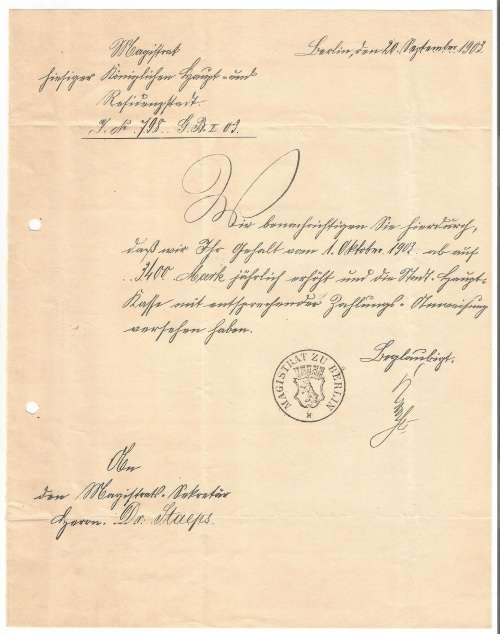 Magistrat
hiesiger Königlichen Haupt- und
Residenzstadt.
J. № 798. G.B. II 03.
Berlin, den 20. September 1903.
Wir benachrichtigen Sie hierdurch,
daß wir Ihr Gehalt vom 1. Oktober 1903 ab auf
3400 Mark jährlich erhöht und die Stadt-Haupt-
Kasse mit entsprechender Zahlungs-Anweisung
versehen haben.
Beglaubigt.
MAGISTRAT ZU BERLIN
An
den Magistrats-Sekretär
Herrn Dr. Staeps.